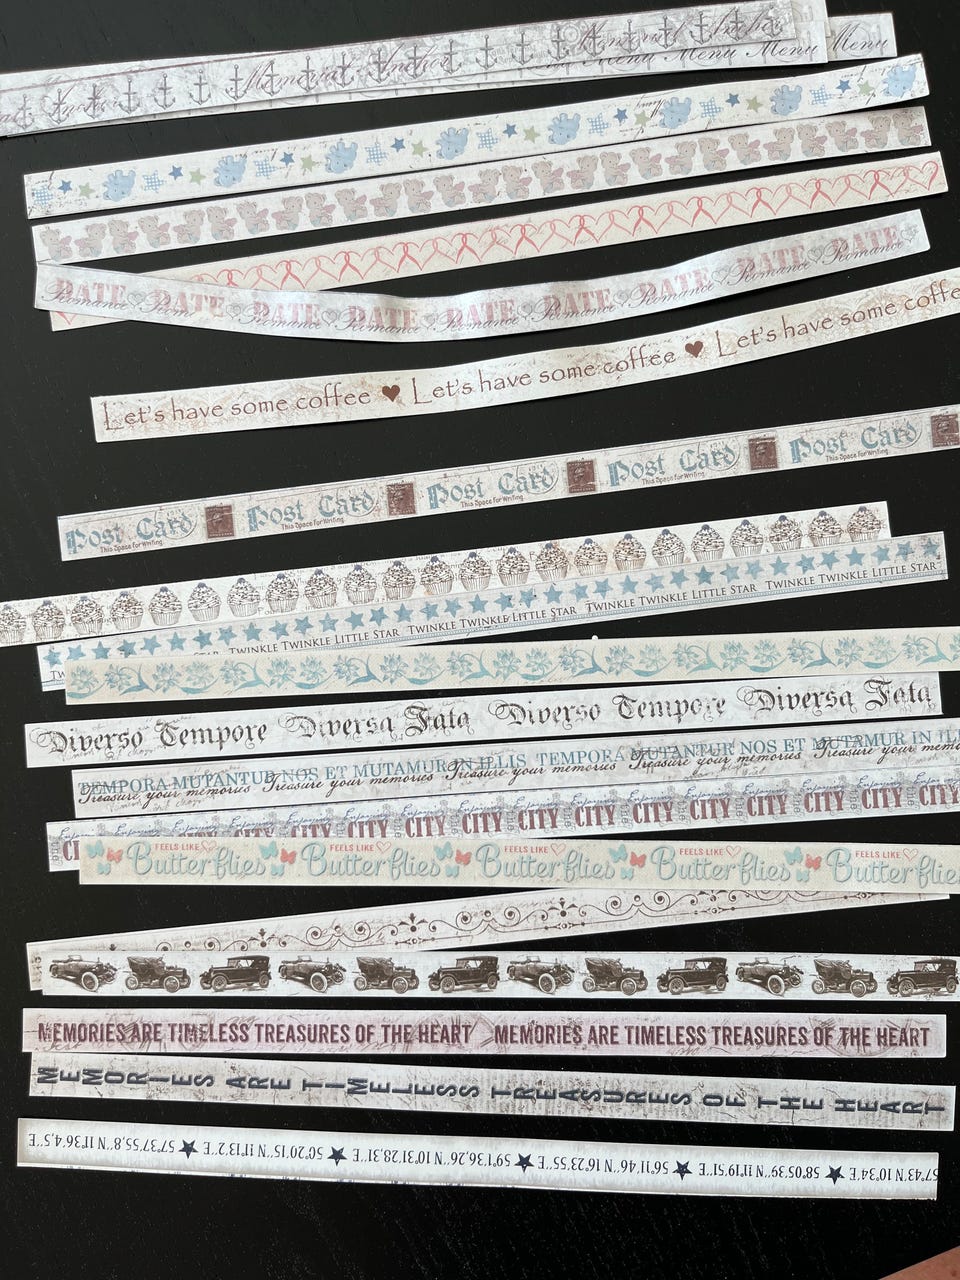 Menu Menu Menu
DATE DATE DATE DATE DATE DATE DATE DATE
Romance Romance Romance Romance Romance Romance Romance Romance Romance
Let's have some coffee Let's have some coffee Let's have some coffe
Post Card Post Card Post Card Post Card Post Card
This Space for Writing This Space for Writing This Space for Writing This Space for Writing This Space for Writing
TWINKLE LITTLE STAR TWINKLE TWINKLE LITTLE STAR TWINKLE TWINKLE LITTLE STAR TWINKLE TWINKLE LITTLE STAR
Diverso Tempore Diversa Fata Diverso Tempore Diversa Fata
TEMPORA MUTANTUR NOS ET MUTAMUR IN ILLIS TEMPORA MUTANTUR NOS ET MUTAMUR IN ILL
Treasure your memories Treasure your memories Treasure your memories Treasure your memo
Enjoying Enjoying Enjoying Enjoying Enjoying Enjoying
CITY CITY CITY CITY CITY CITY CITY CITY CITY CITY CITY CITY CITY
FEELS LIKE FEELS LIKE FEELS LIKE FEELS LIKE FEELS LIKE
Butterflies Butterflies Butterflies Butterflies Butterflies
MEMORIES ARE TIMELESS TREASURES OF THE HEART MEMORIES ARE TIMELESS TREASURES OF THE HEART
MEMORIES ARE TIMELESS TREASURES OF THE HEART
57°43'N 10°34'E ★ 58°05,39''N 11°19,51''E ★ 56°11,46''N 16°23,55 ★ 59°1'36,26''N 10°31'28,31''E ★ 50°20'15''N 11°13'2''E ★ 57°37'55,8''N 11°36'4,5''E